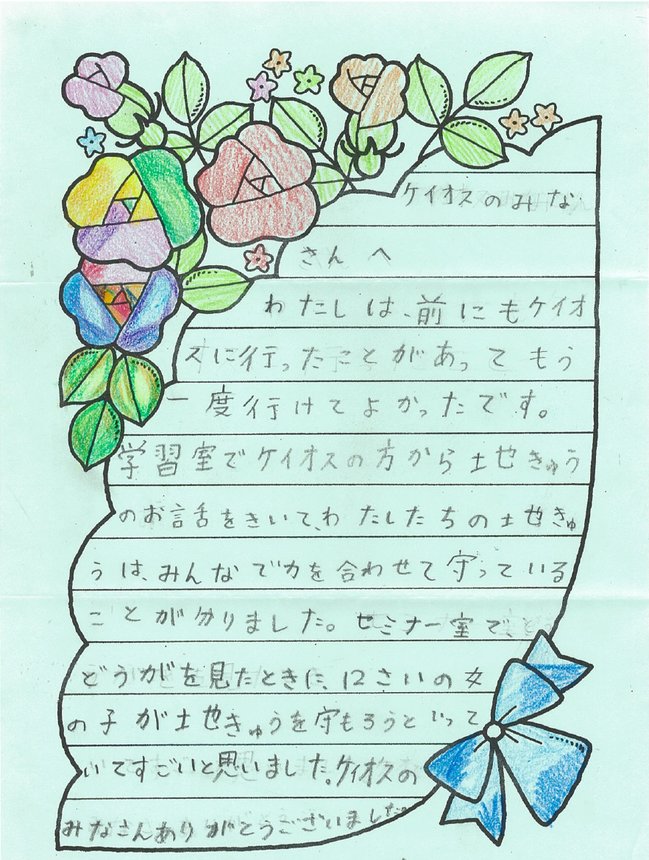 ケイオスのみな
さんへ
わたしは、前にもケイオ
スに行ったことがあってもう
一度行けてよかったです。
学習室でケイオスの方から土也きゅう
のお話をきいて、わたしたちの土也きゅ
うは、みんなで力を合わせて守っている
ことが分りました。セミナー室で、
どうがを見たときに、12さいの女
の子が土也きゅうを守もろうといって
いてすごいと思いました。ケイオスの
みなさんありがとうございました。